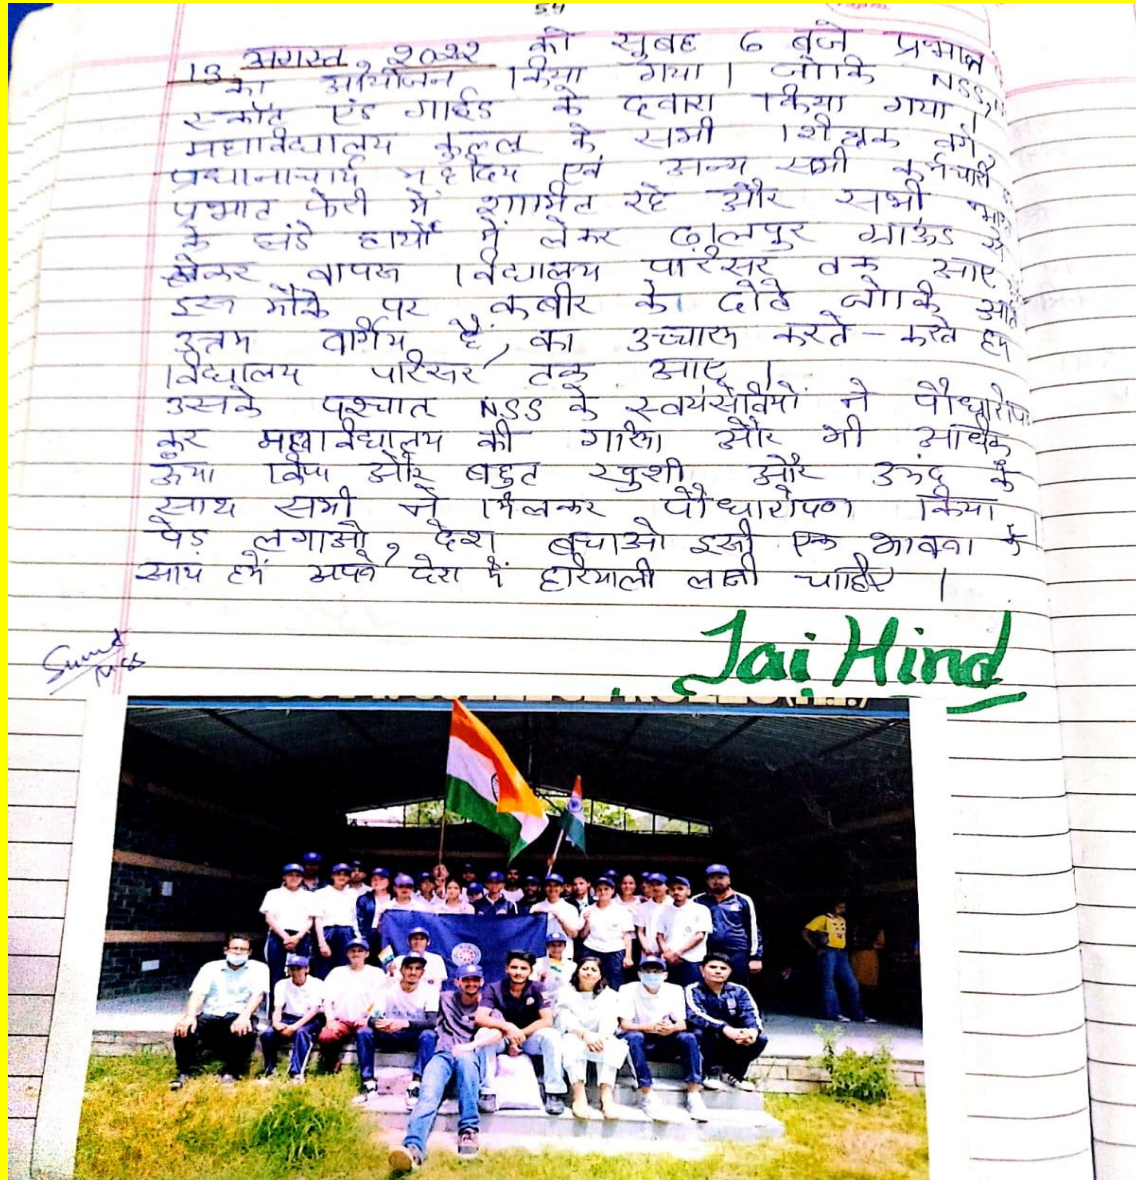 54
13 अगस्त २०२२ को सुबह 6 बजे प्रभात
का आयोजन किया गया। जोकि NSS,
स्कॉट एंड गाईड के द्वारा किया गया।
महाविद्यालय कुल्लू के सभी शिक्षक वर्ग
प्रधानाचार्य महोदय एवं अन्य सभी कर्मचारी
प्रभात फेरी में शामिल रहे और सभी
के झंडे हाथों में लेकर ढ़ालपुर ग्राऊंड से
होकर वापस विद्यालय परिसर तक आए
इस मौके पर कबीर के दोहे जोकि अति
उत्तम वर्गीय हैं, का उच्चारण करते-करते हम
विद्यालय परिसर तक आए।
उसके पश्चात NSS के स्वयंसेवियों ने पौधारोप
कर महाविद्यालय की गरिमा और भी अधिक
ऊंचा किया और बहुत खुशी और के
साथ सभी ने मिलकर पौधारोपण किया
पेड़ लगाओ, देश बचाओ इसी एक भावना के
साथ हमें अपने देश में हरियाली लानी चाहिए।
Jai Hind